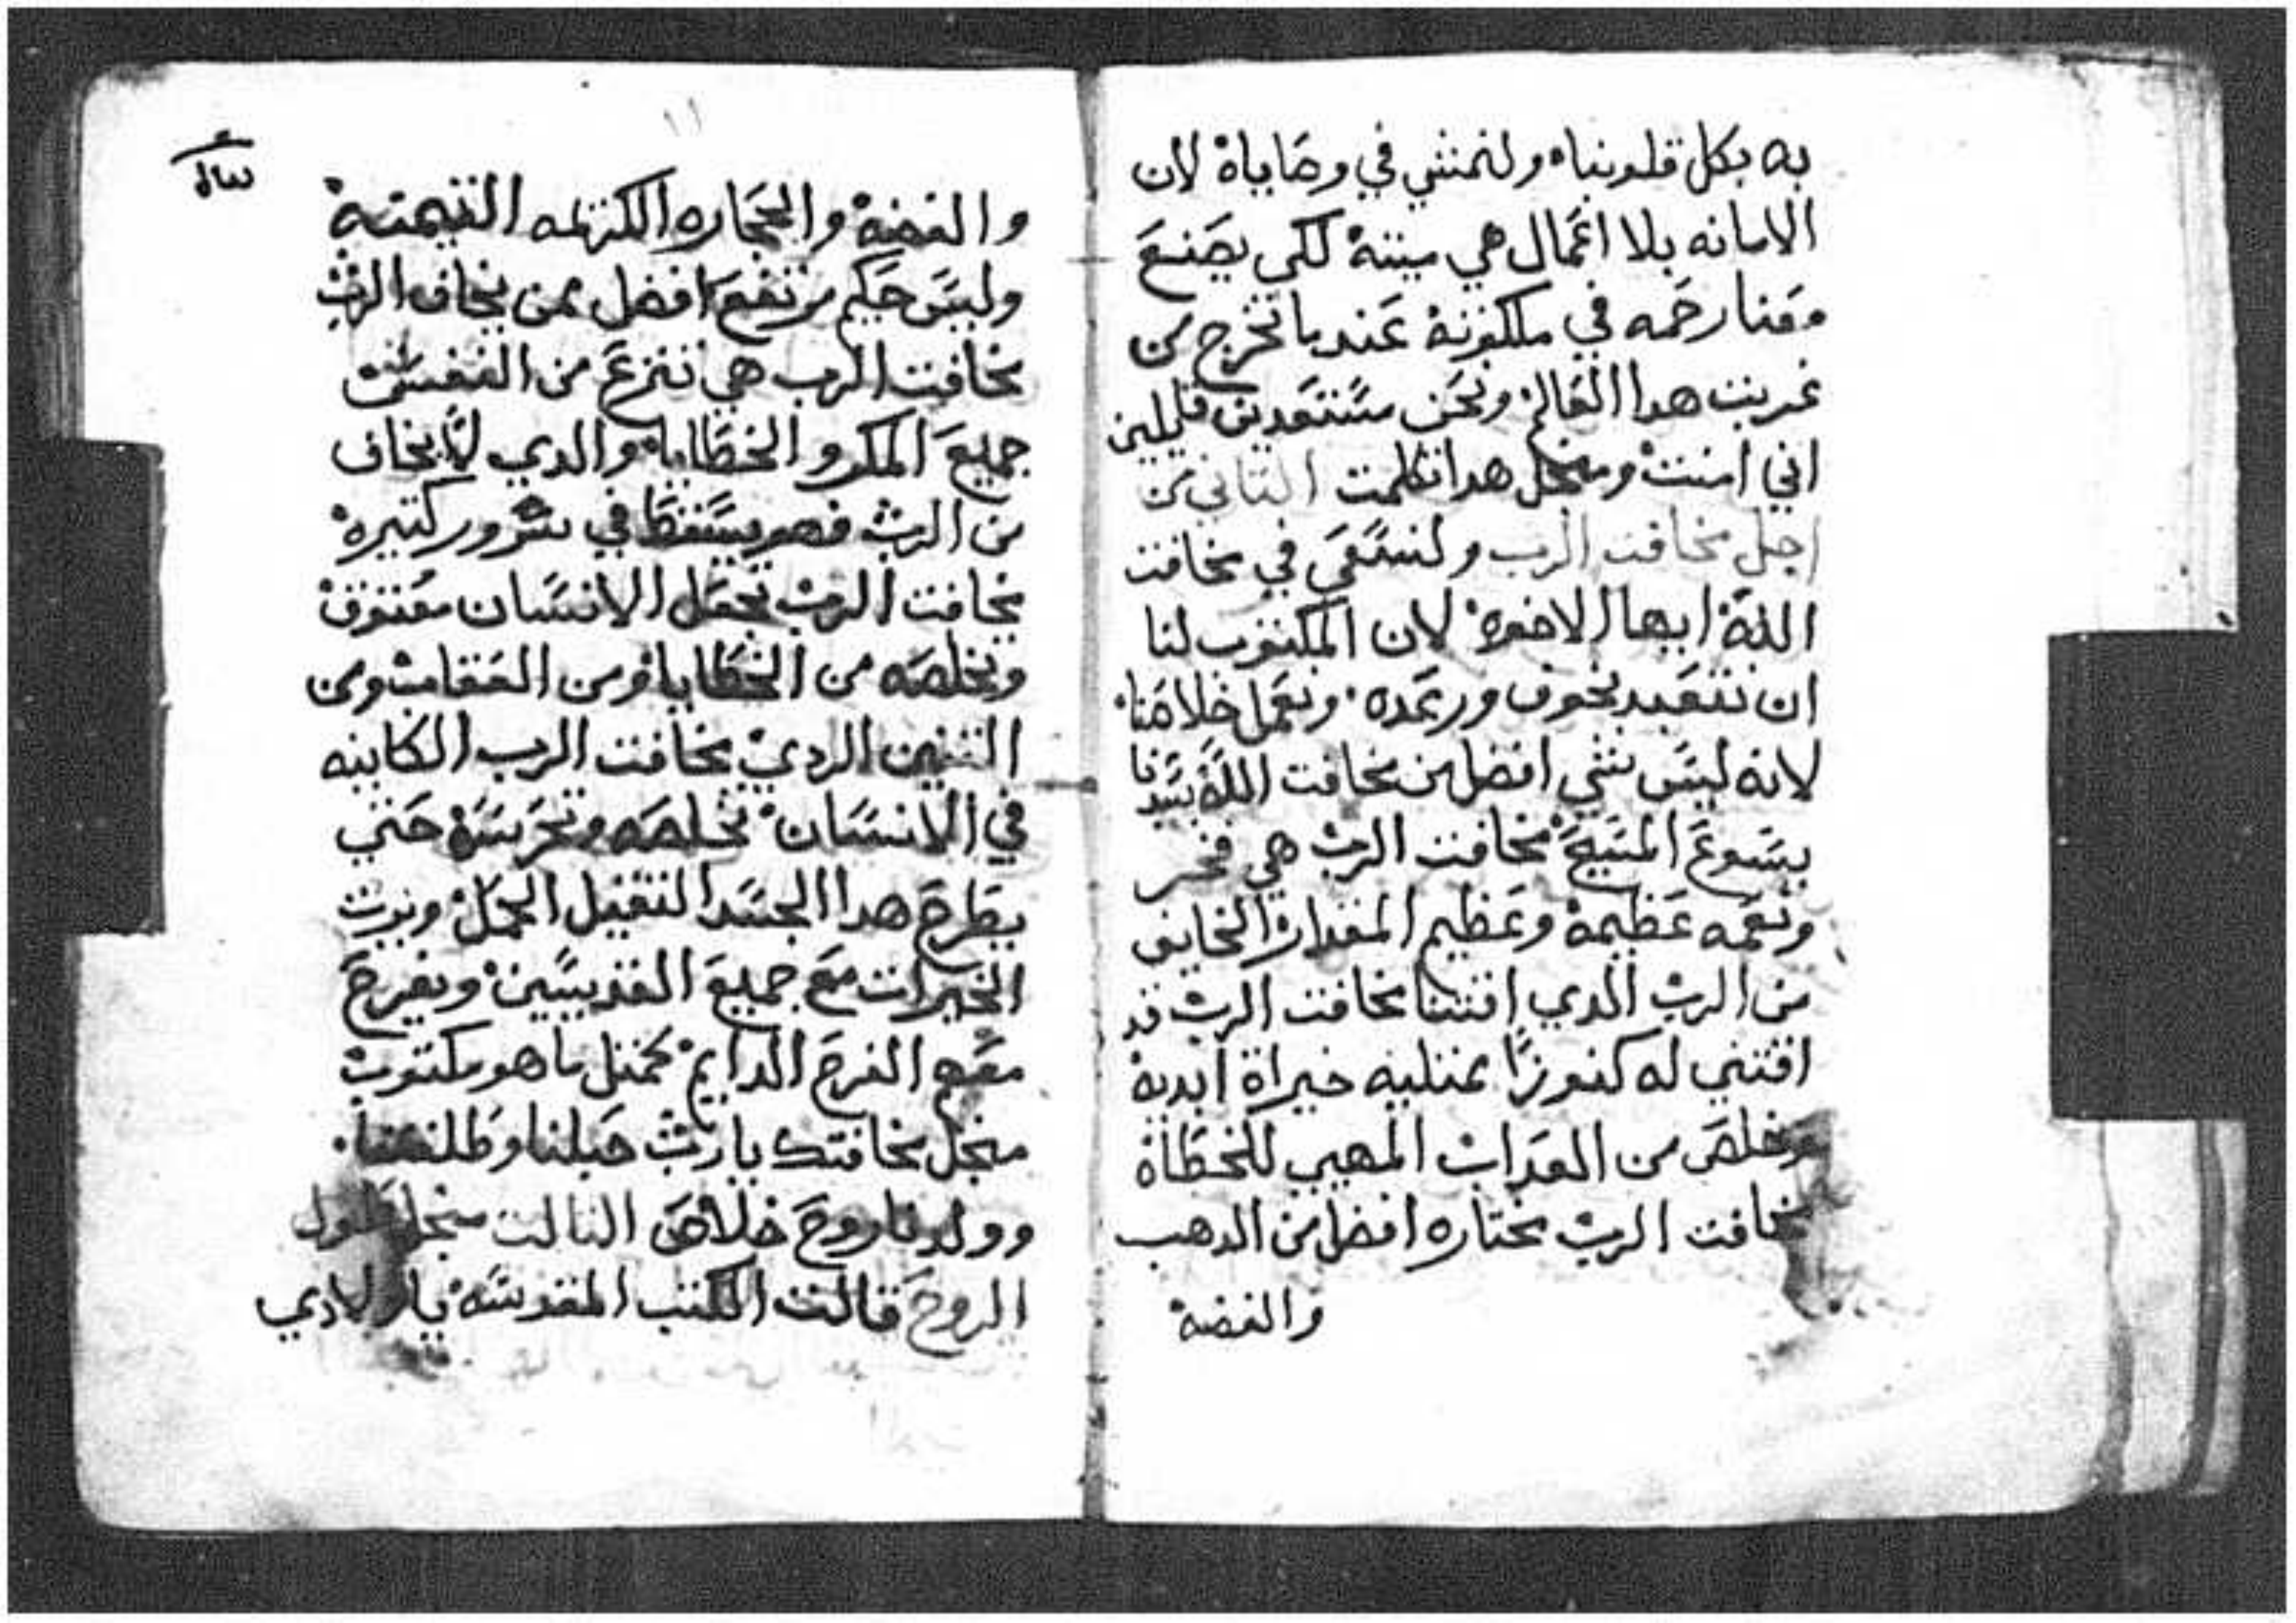 به بكل قلوبنا ولنمشي في وصاياة لان
الامانه بلا اعمال هي ميتة لكي يصنع
معنا رحمه في ملكوتة عندما نخرج من
غربت هدا العالم ونحن مستعدين قايلين
اني امنت ومنجل هدا تكلمت التاني من
اجل مخافت الرب ولنسعي في مخافت
اللة ايها الاخوة لان المكتوب لنا
ان نتعبد بخوف ورعده ونعمل خلاصنا
لانه ليس شي افضل من مخافت اللة سيدنا
يسوع المسيح مخافت الرب هي فخر
ونعمه عظيمة وعظيم المقدار الخايف
من الرب الدي اقتنا مخافت الرب قد
اقتني له كنوزا ممتليه خيراة ابدية
وخلص من العداب المهيب للخطاة
مخافت الرب مختاره افضل من الدهب
والفضة
١١
والفضة والحجاره الكريمه التميتة
وليس حكيم مرتفع افضل ممن يخاف الرب
مخافت الرب هي تنزع من النفس
جميع المكر والخطايا والدي لا يخاف
من الرب فهو يسقط في شرور كتيرة
مخافت الرب تجعل الانسان معتوق
وتخلصه من الخطايا ومن العقاب ومن
التنين الردي مخافت الرب الكاينه
في الانسان تخلصه وتحرسة حتي
يطرح هدا الجسد التقيل الحمل ويرت
الخيرات مع جميع القديسين ويفرح
معهم الفرح الدايم كمتل ما هو مكتوب
منجل مخافتك يارب حبلنا وطلقنا
وولدنا روح خلاص التالت منجل طول
الروح قالت الكتب المقدسه يا اولادي